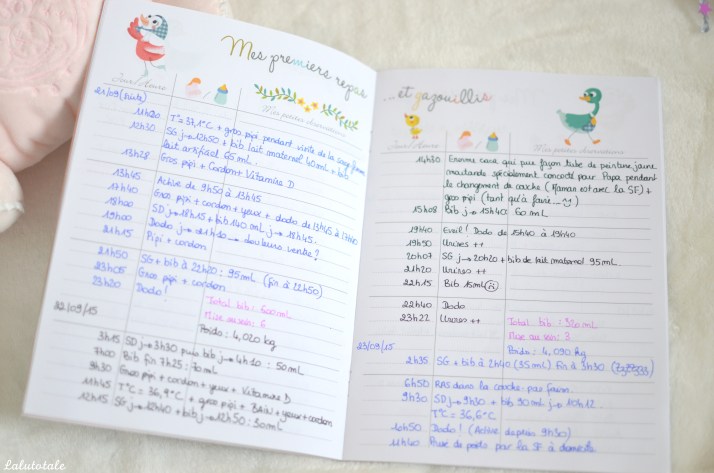 Mes premiers repas
Jour/Heure
Mes petites observations
21/09 (suite)
11h20 T°= 37,1°C + gros pipi pendant visite de la sage femme
12h30 SG j→12h50 + bib lait maternel 40mL + bib
lait artificiel 65 mL.
13h28 Gros pipi + Cordon + Vitamine D
13h45 Active de 9h50 à 13h45
17h40 Gros pipi + cordon + yeux + dodo de 13h45 à 17h40
18h00 SD j→18h15 + bib 140 mL j→18h45.
19h00 Dodo j→21h10 → douleurs ventre?
21h15 Pipi + cordon
21h50 SG + bib à 22h20: 95mL (fin à 22h50)
23h05 Gros pipi + cordon
23h20 Dodo!
Total bib: 600mL
Mise au sein: 6
Poids: 4,020 kg
22/09/15
3h15 SD j→3h30 puis bib j→4h10 : 50mL
7h00 Bib fin 7h25: 70mL
9h30 Gros pipi + cordon + yeux + Vitamine D
11h45 T°C = 36,9°C + gros pipi + Bain + yeux + cordon
12h15 SG j→12h40 + bib j→12h50: 30mL
...et gazouillis
Jour/Heure
Mes petites observations
14h30 Enorme caca qui pue façon tube de peinture jaune
moutarde spécialement concocté pour Papa pendant
le changement de couche (Maman est avec la SF) +
gros pipi (tant qu'à faire...
15h08 Bib j→15h40: 60mL
19h40 Eveil! Dodo de 15h40 à 19h40
19h50 Urines ++
20h07 SG j→20h20 + bib de lait maternel 95mL.
21h20 Urines ++
22h15 Bib 15mL
22h40 Dodo
23h22 Urines ++
Total bib : 320mL
Mise au sein: 3
Poids: 4,090 kg
23/09/15
2h35 SG + bib à 2h40 (35mL) fin à 3h30
6h50 RAS dans la couche: pas faim.
9h30 SD j→9h30 + bib 90mL j→10h12.
T°C = 36,6°C
10h50 Dodo! (Active depuis 9h30)
11h40 Prise de poids par la SF à domicile
Lalutotale